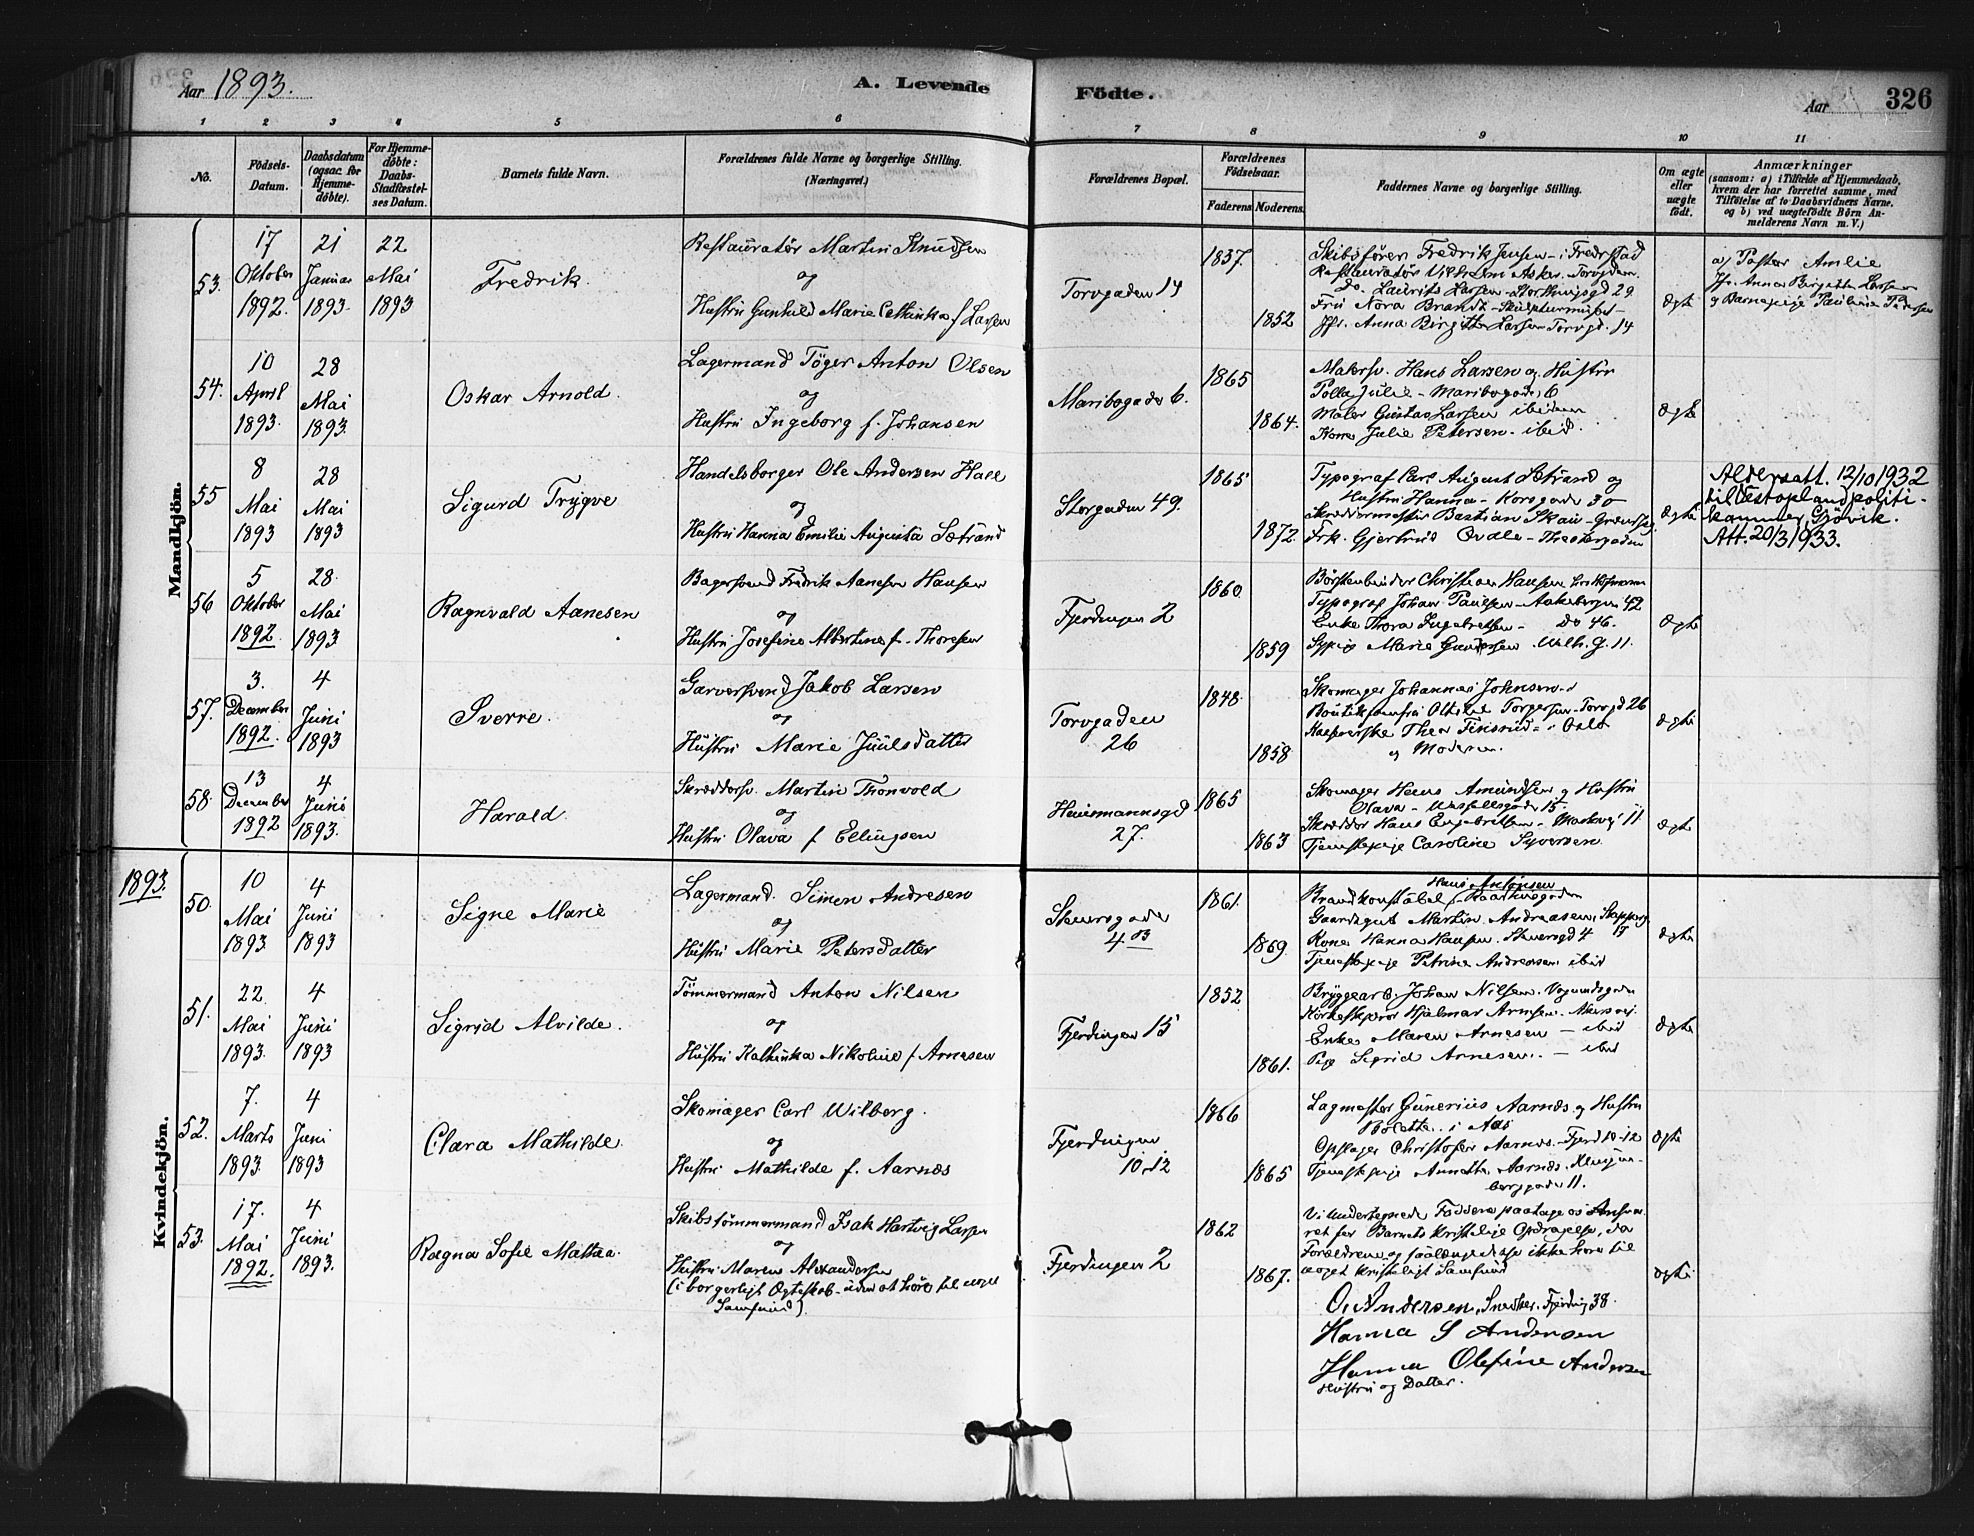 Aar 1893.
A. Levende Födte.
Aar
326
1 2 3 4 5 6 7 8 9 10 11
No.
Födsels-Datum.
Daabsdatum (ogsaa for Hjemme-döbte).
For Hjemme-döbte: Daabs-Stadfæstel-ses Datum.
Barnets fulde Navn.
Forældrenes fulde Navne og borgerlige Stilling.
(Næringsvei.)
Forældrenes Bopæl.
Forældrenes Födselsaar.
Faderens Moderens
Faddernes Navne og borgerlige Stilling.
Om ægte eller uægte födt.
Anmærkninger
(saasom: a) i Tilfælde af Hjemmedaab,
hvem der har forrettet samme, med
Tilföielse af to Daabsvidners Navne,
og b) ved uægtefödte Börn An-
melderens Navn m. V.)
Mandkjön.
53.
17 Oktober 1892.
21 Januar 1893.
22 Mai 1893
Fredrik.
Restauratør Martin Knudsen
og
Hustru Gunhild Marie Cathinka f Larsen
Torvgaden 14
1837.
1852
Skibsfører Fredrik Jensen - i Fredrstad
Restauratør Vilhelm Asker. Torvgaden
do. Laurits Larsen - Storthingsgd 29
Fru Nora Brandt - Skulpturmuseet -
Jfr. Anna Birgitte Larsen Torvgd. 14
Ægte
a) Pastor Amlie
Jfr. Anna Birgitte Larsen
og Barnepige Pauline Pedersen
54.
10 April 1893.
28 Mai 1893.
Oskar Arnold.
Lagermand Töger Anton Olsen
og
Hustru Ingeborg f. Johansen
Maribogaden 6.
1865
1864.
Malersv. Hans Larsen og Hustru
Polla Julie - Maribogaden 6
Maler Gustav Larsen ibidem
Kone Julie Petersen - ibid.
Ægte
55
8 Mai 1893
28 Mai 1893
Sigurd Trygve
Handelsborger Ole Andersen Hall
og
Hustru Hanna Emilie Augusta Sætrand
Storgaden 49.
1865
1872.
Typograf Carl August Sætrand og
Hustru Hanna - Korsgaden 30
Skræddermester Bastian Skau -
Frk. Gjertrud - Theatergaden
Ægte
Aldersatt. 12/10 1932
til Vestopland politi-
kammer, Gjövik.
Att. 20/3 1933.
56
5 Oktober 1892.
28. Mai 1893
Ragnvald Aanesen
Bagersvend Fredrik Aanesen Hansen
og
Hustru Josefine Albertine f. Thoresen
Fjerdingen 2
1860
1859
Børstenbinder Christian Hansen
Typograf Johan Paulsen - Aakebergvn 42
Enke Thora Ingebretsen - Do 46.
Sypige Marie Gundersen Wilh. G. 11.
Ægte
57.
3. December 1892.
4 Juni 1893
Sverre.
Garversvend Jakob Larsen
og
Hustru Marie Juulsdatter
Torvgaden
26
1848.
1858
Skomager Johannes Johnsen
Boutikjomfru Torgersen - Torvgd 26
Thea Finsrud - i Oslo
og Moderen.
Ægte
58.
13 December 1892
4 Juni 1893.
Harald.
Skræddersv. Martin Thorvold
og
Hustru Olava f Ellingsen
Heimannsgd
27.
1865
1863
Skomager Hans Amundsen og Hustru
Olava - 15.
Skrædder Hans Engebretsen - Maskvei 11
Tjenestepige Caroline Syversen
Ægte
1893.
Kvindekjön.
50.
10 Mai 1893
4 Juni 1893
Signe Marie
Lagermand. Simen Andresen
og
Hustru Marie Petersdatter
Steensgaden
4 B
1861.
1869.
Hans Antonsen
Brandkonstabel
Gaardsgut Martin Andreasen,
Kone Hanna Hansen. Steensgd 4
Tjenestepige Petrine Andreassen ibid
Ægte
51.
22. Mai 1893.
4 Juni 1893
Sigrid Alvilde.
Tömmermand Anton Nilsen
og
Hustru Kathinka Nikoline f Arnesen
Fjerdingen 15
1852
1861.
Bryggearb. Johan Nilsen.
Hjalmar Arnesen.
Enke Maren Arnesen - ibid
Pige Sigrid Arnesen. - ibid
Ægte
52.
7. Marts 1893.
4 Juni 1893
Clara Mathilde.
Skomager Carl Wilberg.
og
Hustru Mathilde f. Aarnæs
Fjerdingen
10-12
1866
1865
Gunerius Aarnæs og Hustru
Bolette.. i
Christofer Aarnæs - Fjerd 10-12
Tjenestepige Annette Aarnæs. Klingen-
berggaden 11.
Ægte
53.
17. Mai 1892.
4 Juni 1893.
Ragna Sofie Mathea.
Skibstömmermand Isak Hartvig Larsen
og
Hustru Maren Alexandersen
(i borgerligt Ægteskab - uden at høre til noget
Samfund)
Fjerdingen 2
1862
1867.
Vi undertegnede Faddere paatage os Ansva-
ret for Barnets kristelige Opdragelse, da
Forældrene og saalænge disse ikke høre til
noget kristeligt Samfund
O. Andersen, Snedker. Fjerding 38.
Hanna S Andersen
Hanna Olefine Andersen
Hustru og Datter.
Ægte